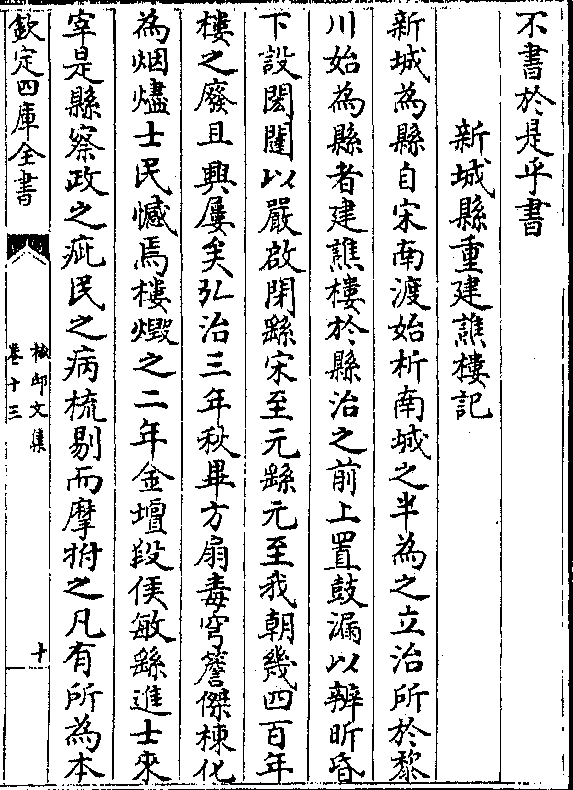 不書於是乎書
新城縣重建譙樓記
新城為縣自宋南渡始析南城之半為之立治所於黎
川始為縣者建譙樓於縣治之前上置鼓漏以辨昕昏
下設閎闥以嚴啟閉繇宋至元繇元至我朝幾四百年
樓之廢且興屢矣弘治三年秋畢方扇毒穹簷傑棟化
為烟燼士民憾焉樓燬之二年金壇段侯敏繇進士來
宰是縣察政之疵民之病梳剔而摩拊之凡有所為本
欽定四庫全書
文集
卷十三
十